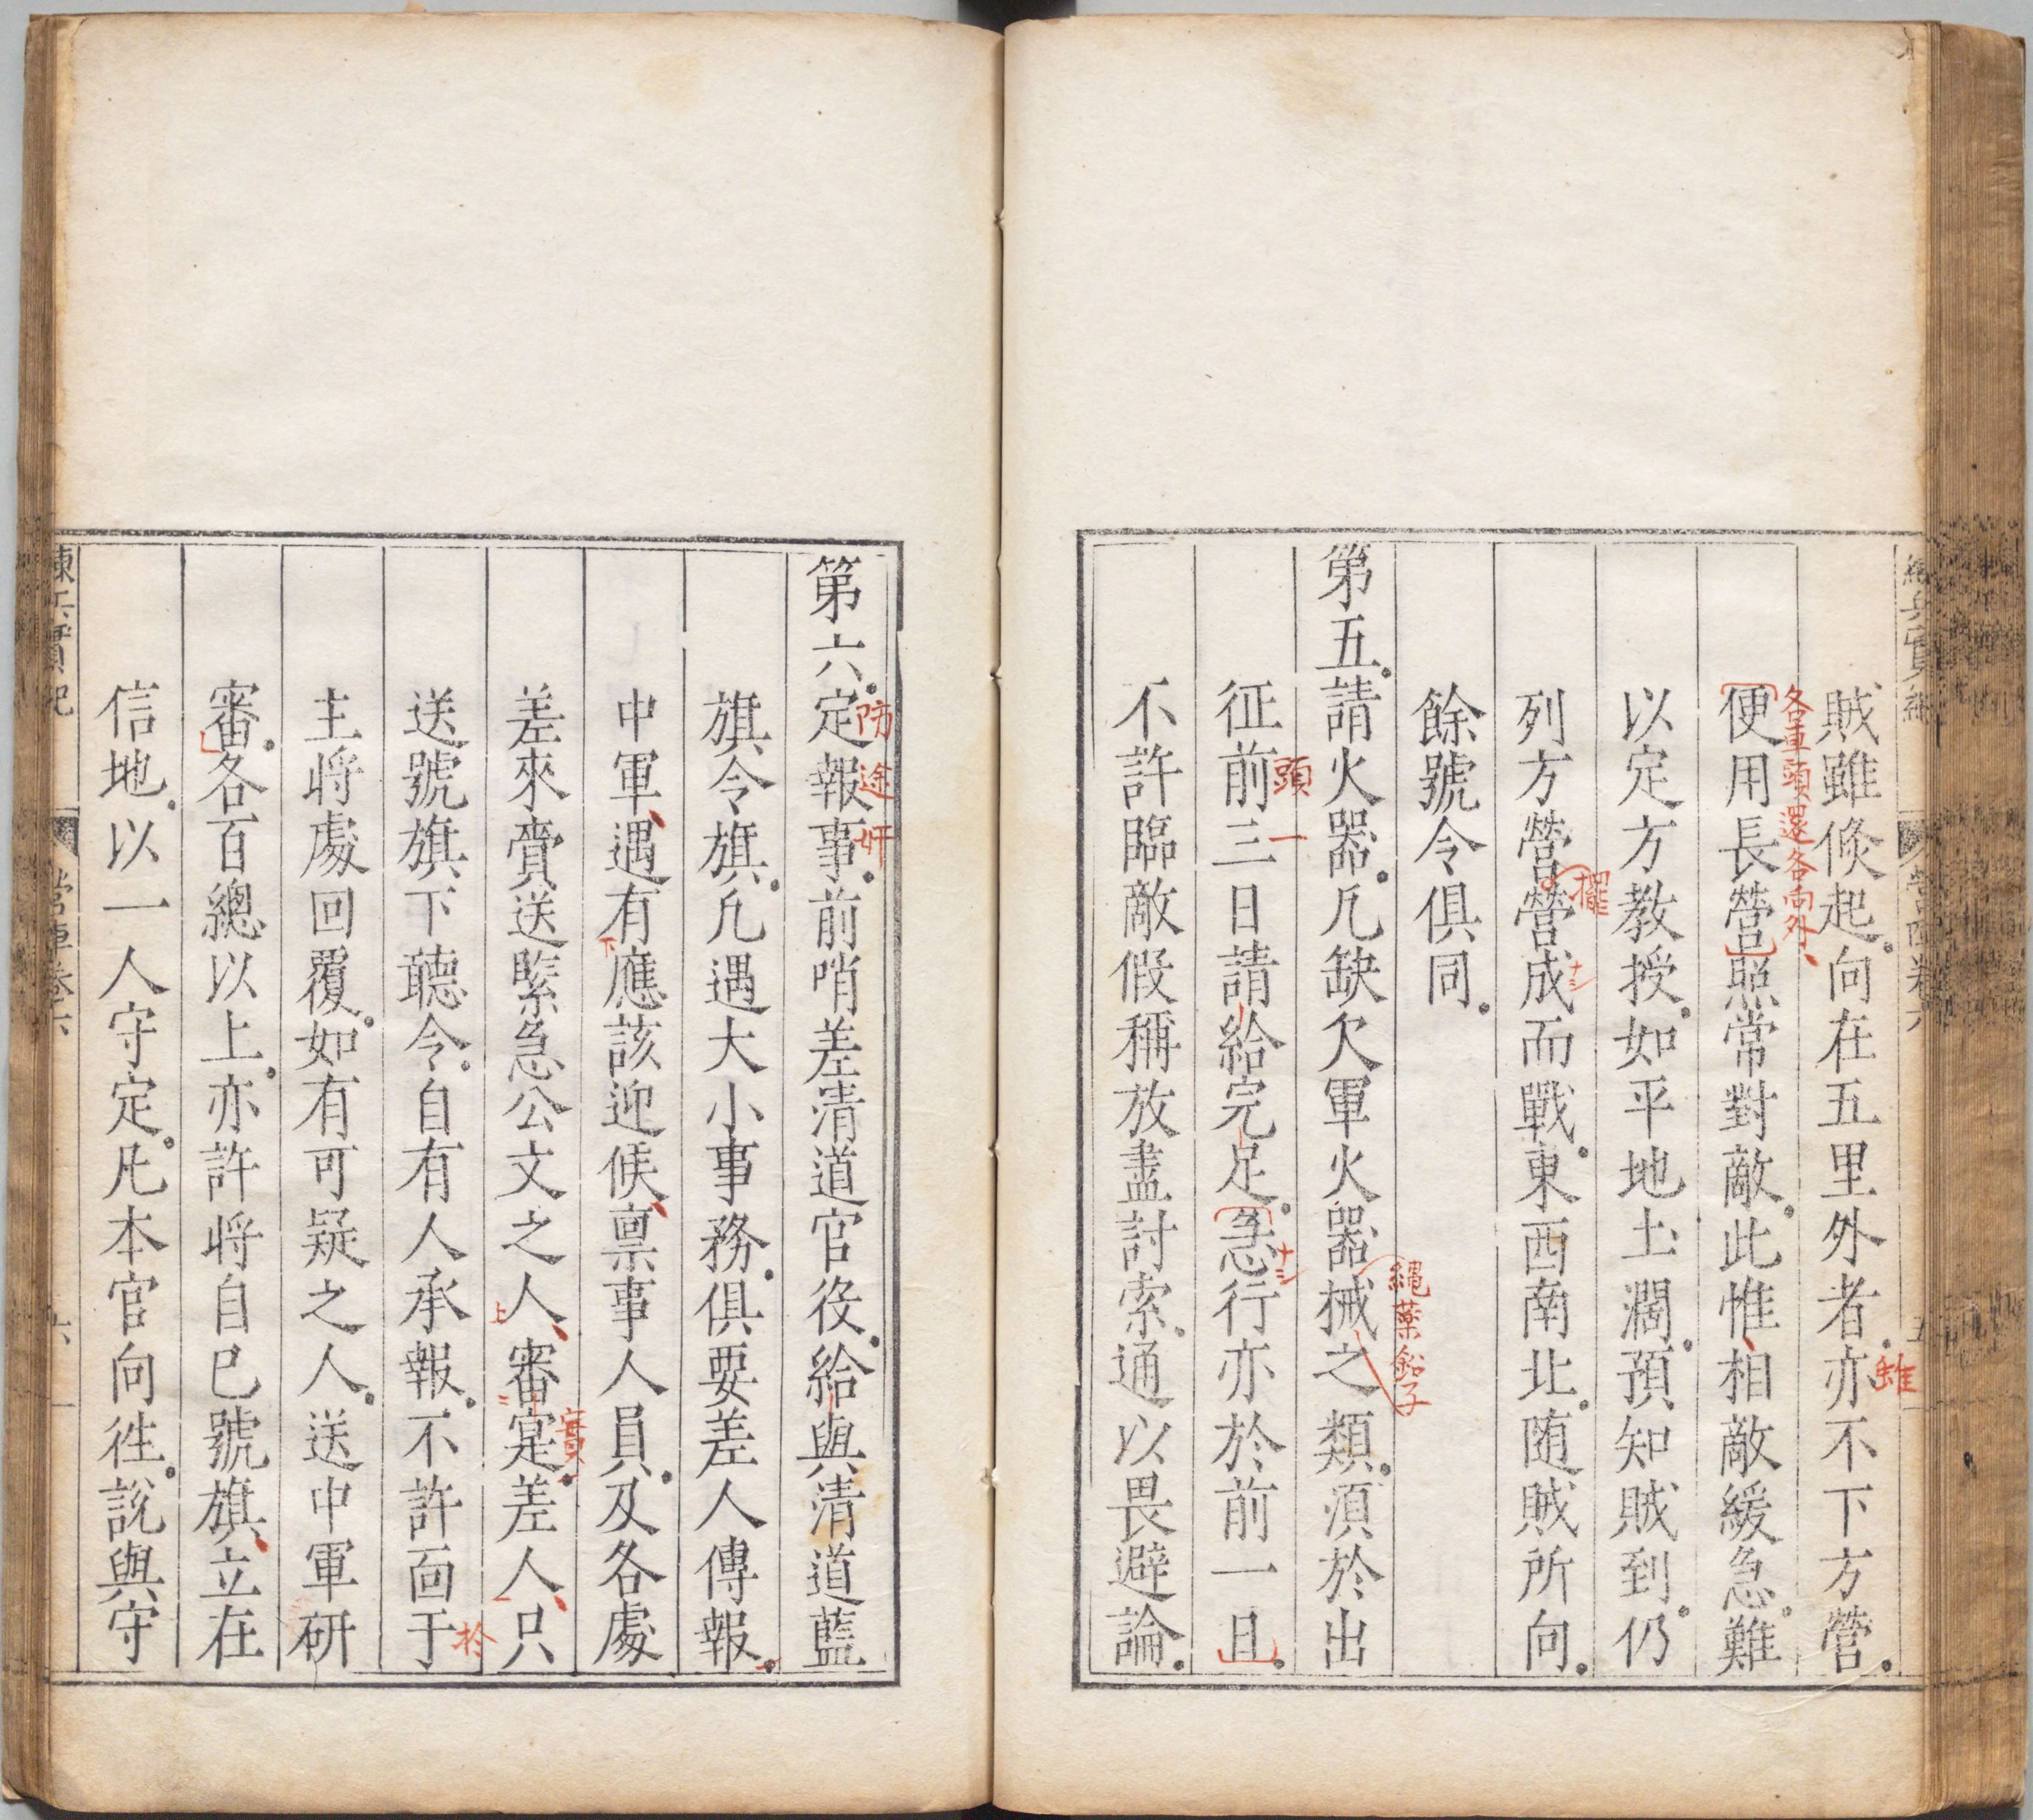 賊雖倐起。向在五里外者。亦不下方營。
雖
各車頭還各向外、
便用長營照常對敵。此惟相敵緩急。難
以定方教授。如平地土濶。預知賊到。仍
列方營營成而戰。東西南北。随賊所向。
擺
餘號令俱同。
繩藥鉛子
第五。請火器。凡缺欠軍火器械之類。須於出
征前三日請給完足。急行亦於前一日。
頭一
不許臨敵假稱放盡討索。通以畏避論。
第六。定報事。前哨差清道官役。給與清道藍
防途奸
旗、令旗。凡遇大小事務。俱要差人傳報。
中軍、遇有應該迎候、禀事人員。及各處
差來賫送緊急公文之人、審寔。差人、只
實
送號旗下聽令。自有人承報。不許面于
於
主将處回覆。如有可疑之人。送中軍研
審。各百總以上。亦許将自已號旗、立在
信地。以一人守定。凡本官向徃。說與守
練兵實紀
營車卷六
六